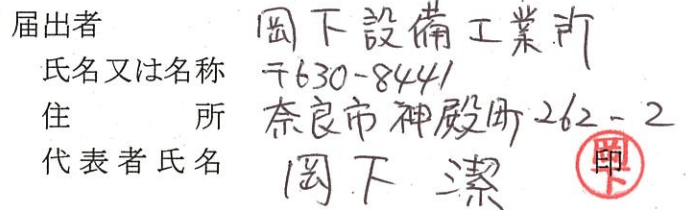 届出者 岡下設備工業所
氏名又は名称 〒630-8441
住所 奈良市神殿町262-2
代表者氏名 岡下 潔 印 岡下